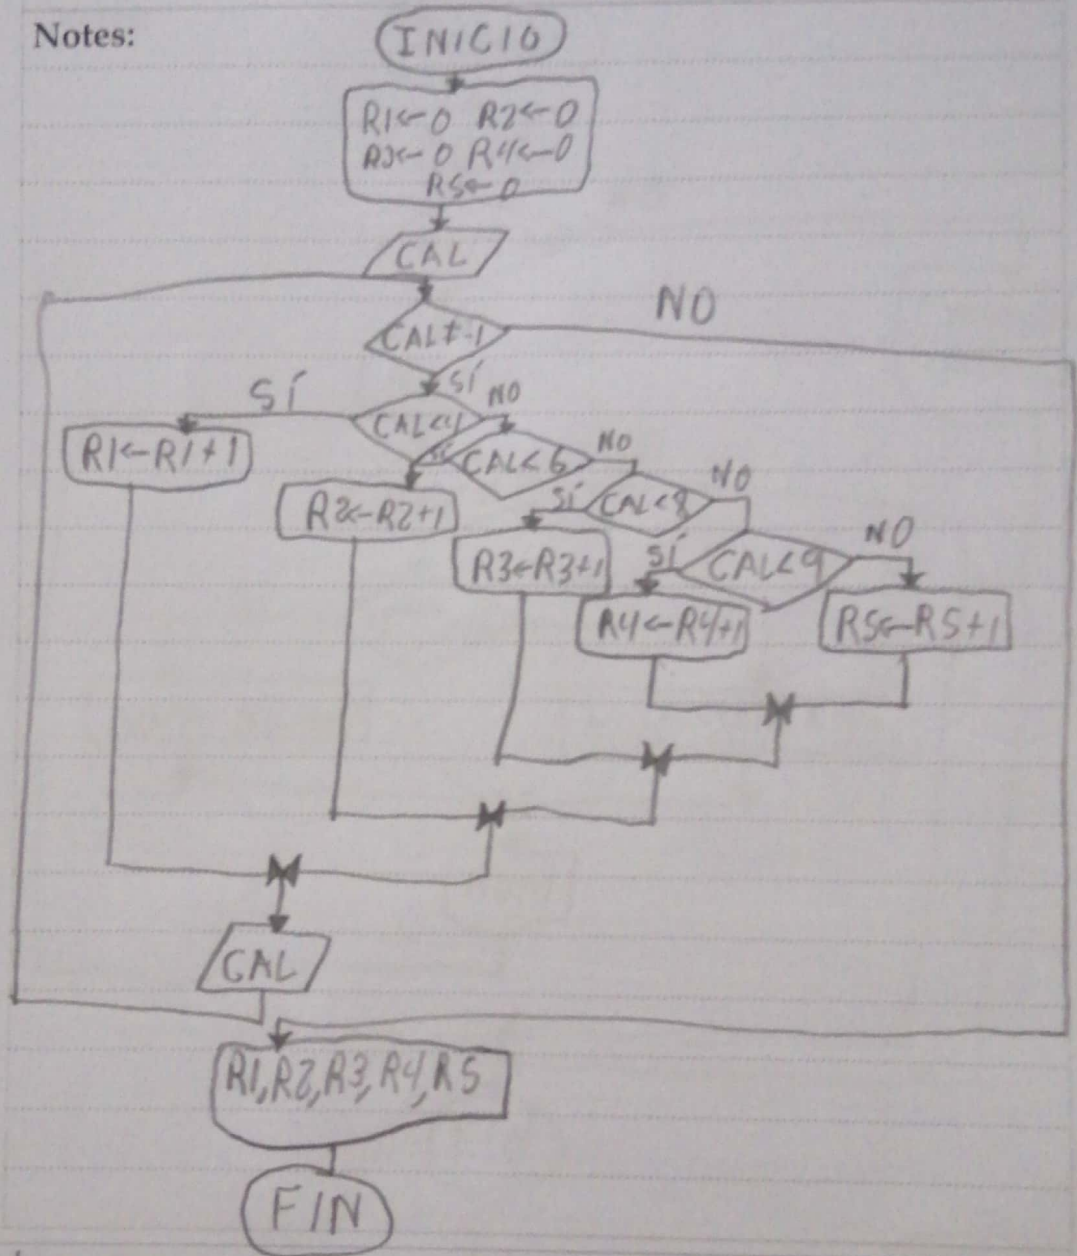 Notes:
INICIO
R1←0 R2←0
R3←0 R4←0
R5←0
CAL
CAL≠-1
NO
SÍ
CAL<4
SÍ
NO
R1←R1+1
CAL<6
SÍ
NO
R2←R2+1
CAL<8
SÍ
NO
R3←R3+1
CAL<9
SÍ
NO
R4←R4+1
R5←R5+1
CAL
R1,R2,R3,R4,R5
FIN